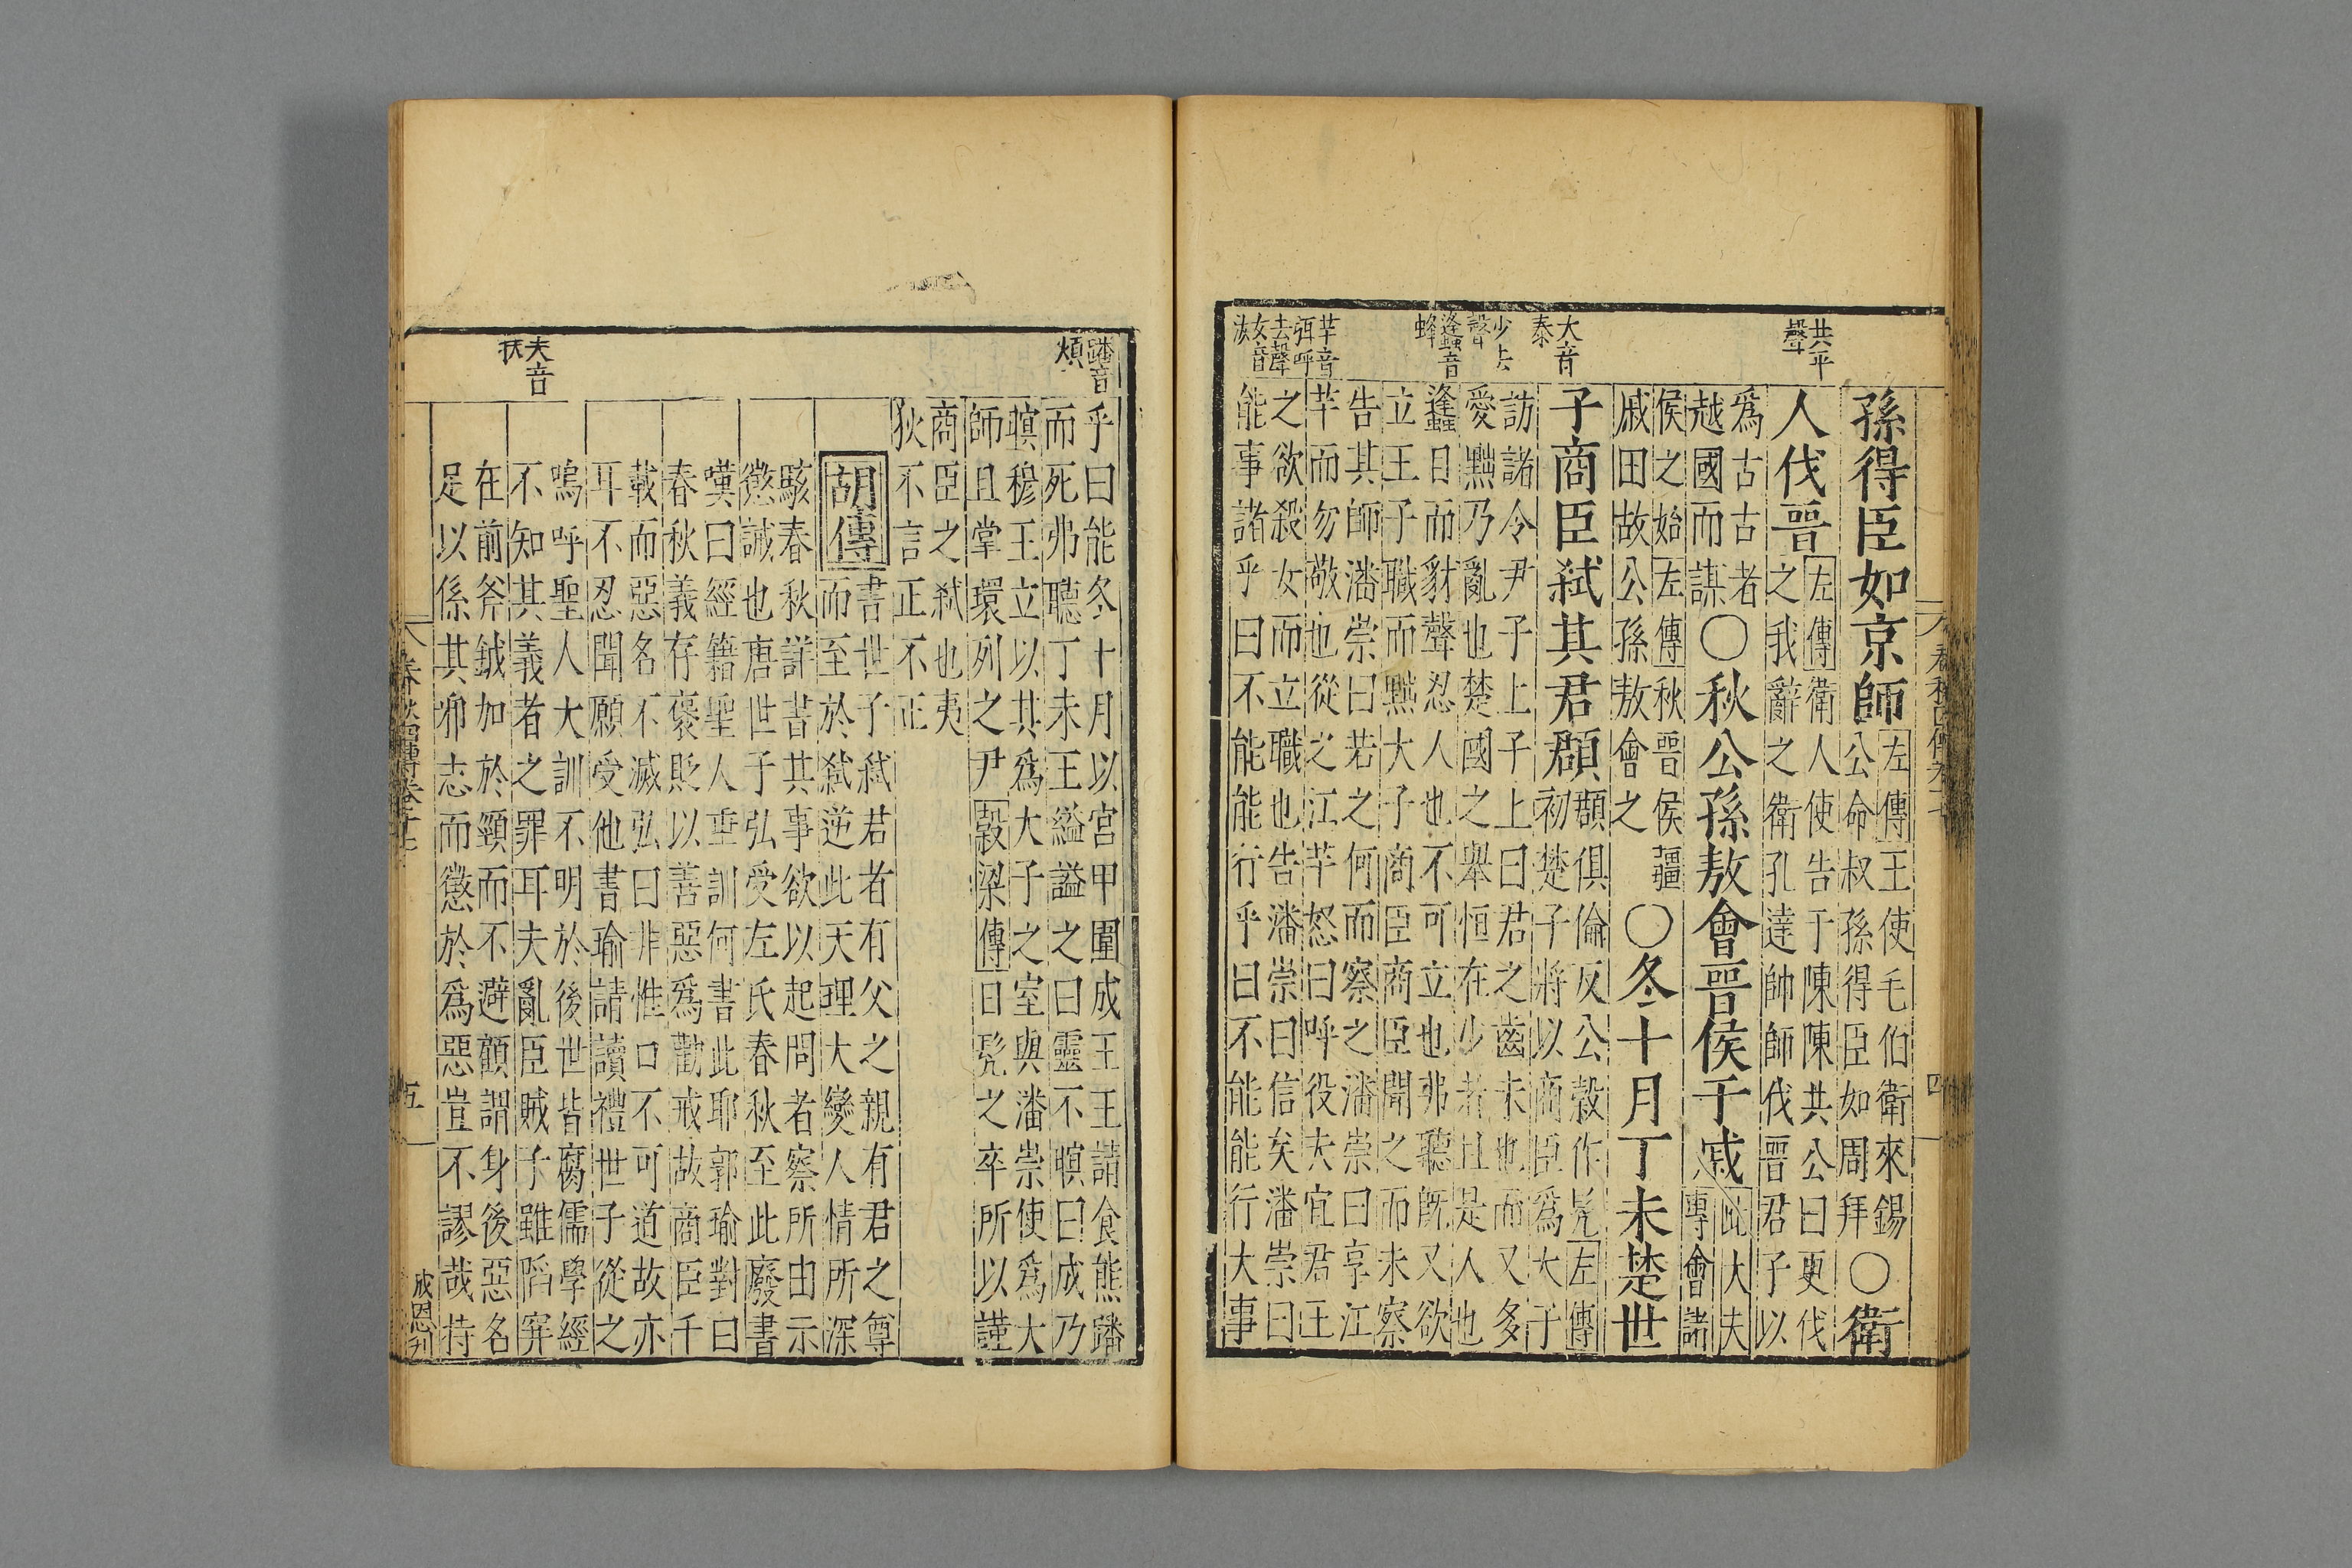 共平聲
大音泰
少去聲
蠭音蜂
羋音弭呼去聲女音汝
孫得臣如京師
左傳王使毛伯衛來錫
公命叔孫得臣如周拜
○衛
人伐晉
左傳衛人使告于陳陳共公曰更伐
之我辭之衛孔達帥師伐晉君子以
爲古古者
越國而謀
○秋公孫敖會晉侯于戚
此大夫
專會諸
侯之始左傳秋晉侯疆
戚田故公孫敖會之
○冬十月丁未楚世
子商臣弒其君頵
頵俱倫反公穀作髠左傳
初楚子將以商臣爲大子
訪諸令尹子上子上曰君之齒未也而又多
愛黜乃亂也楚國之舉恒在少者且是人也
蠭目而豺聲忍人也不可立也弗聽既又欲
立王子職而黜大子商臣商臣聞之而未察
告其師潘崇曰若之何而察之潘崇曰享江
羋而勿敬也從之江羋怒曰呼役夫宜君王
之欲殺女而立職也告潘崇曰信矣潘崇曰
能事諸乎曰不能能行乎曰不能能行大事
蹯音煩
夫音扶
乎曰能冬十月以宮甲圍成王王請食熊蹯
而死弗聽丁未王縊謚之曰靈不瞑曰成乃
瞑穆王立以其爲大子之室與潘崇使爲大
師且掌環列之尹穀梁傳日髠之卒所以謹
商臣之弒也夷
狄不言正不正
胡傳
書世子弒君者有父之親有君之尊
而至於弒逆此天理大變人情所深
駭春秋詳書其事欲以起問者察所由示
懲誡也唐世子弘受左氏春秋至此廢書
嘆曰經籍聖人垂訓何書此耶郭瑜對曰
春秋義存褒貶以善惡爲勸戒故商臣千
載而惡名不滅弘曰非惟口不可道故亦
耳不忍聞願受他書瑜請讀禮世子從之
嗚呼聖人大訓不明於後世皆腐儒學經
不知其義者之罪耳夫亂臣賊子雖陷穽
在前斧鉞加於頸而不避顧謂身後惡名
足以係其邪志而懲於爲惡豈不謬哉持
春秋四傳卷十七
五
成恩刋